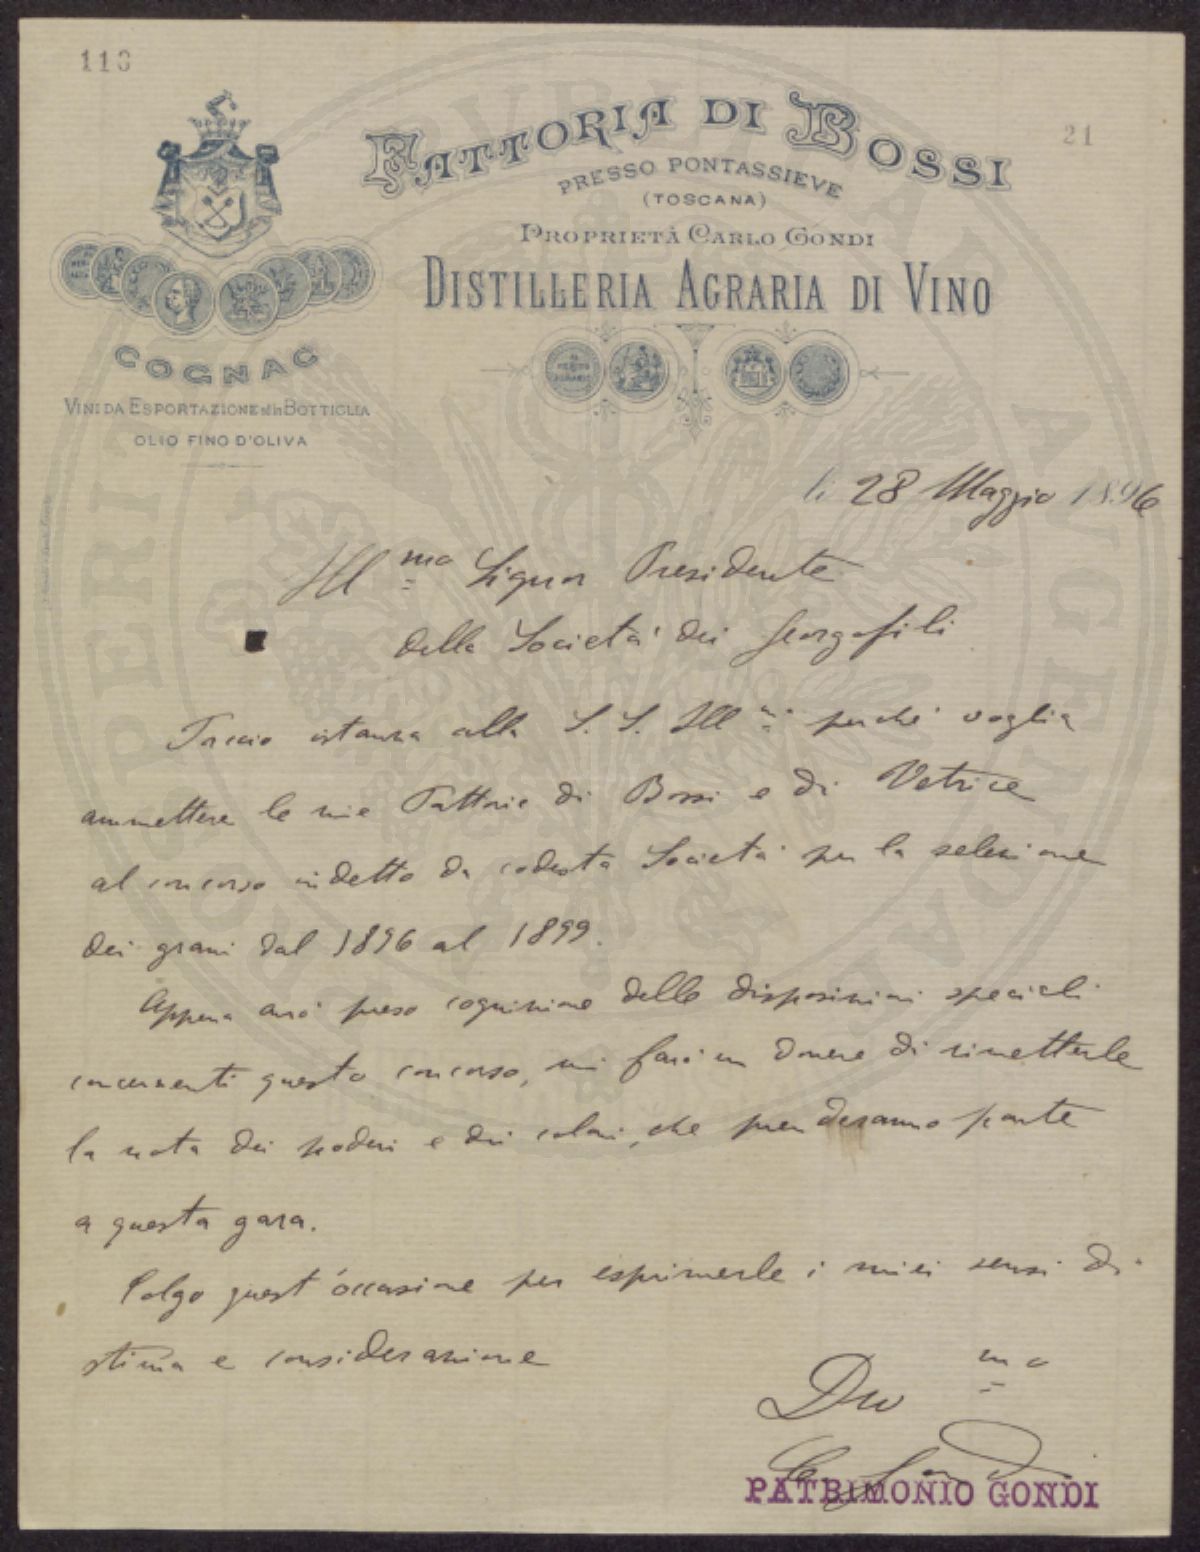 113
21
FATTORIA DI BOSSI
PRESSO PONTASSIEVE
(TOSCANA)
PROPRIETÀ CARLO GONDI
DISTILLERIA AGRARIA DI VINO
COGNAC
VINI DA ESPORTAZIONE ed in BOTTIGLIA
OLIO FINO D'OLIVA
li 28 Maggio 1896
Ill mo Signor Presidente
della Società dei Georgofili
Faccio istanza alla S. S. Ill perché voglia
ammettere le mie Fattorie di Bossi e di Vetrice
al concorso indetto da codesta Società per la selezione
dei grani dal 1896 al 1899.
Appena avrò preso cognizione delle disposizioni speciali
concernenti questo concorso, mi farò un dovere di rimetterle
la nota dei poderi e dei coloni, che prenderanno parte
a questa gara.
Colgo quest'occasione per esprimerle i miei sensi di
stima e considerazione
Dev mo
C Gondi
PATRIMONIO GONDI